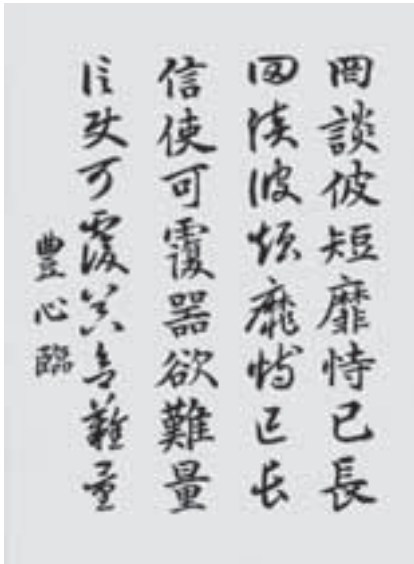 罔談彼短靡恃己長
罔談彼短靡恃己長
信使可覆器欲難量
信使可覆器欲難量
豊心臨